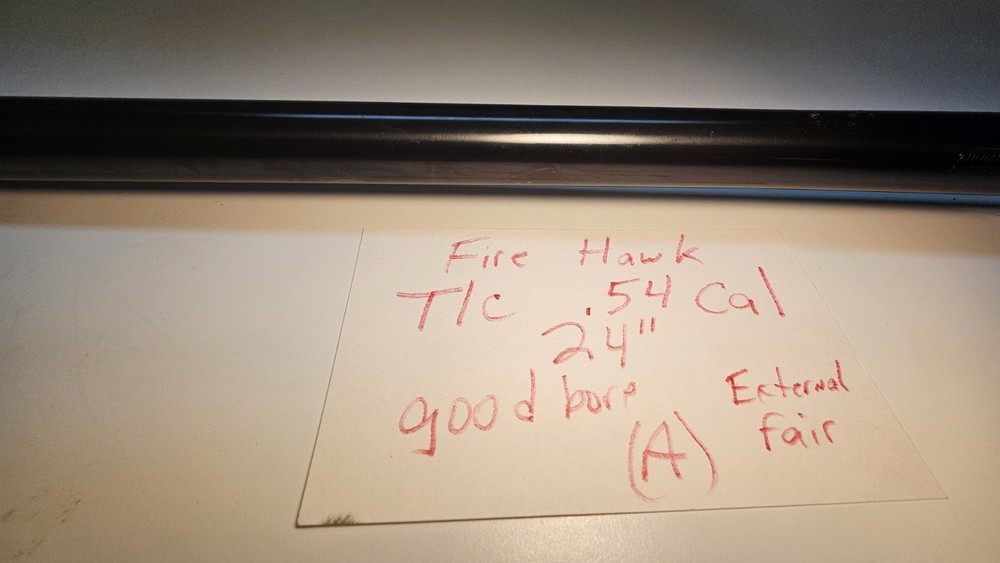 Fire Hawk
T/C .54 Cal
24"
good bore
External
fair
(A)